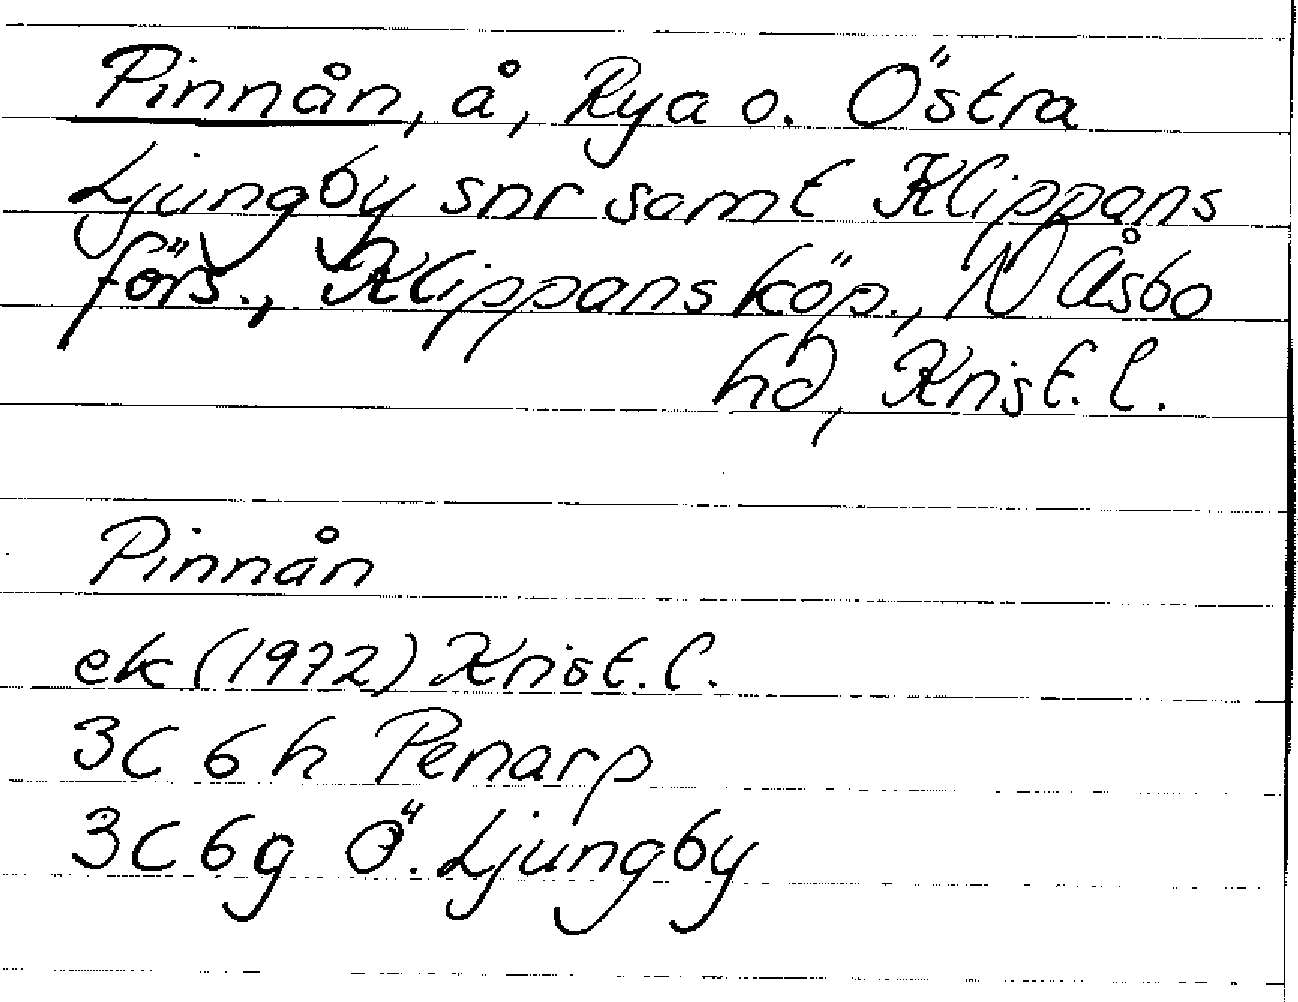 Pinnån, å, Rya o. Östra
Ljungby snr samt Klippans
förs., Klippans köp., N Åsbo
hd, Krist. l.
Pinnån
ek (1972) Krist. l.
3C 6h Penarp
3C 6g Ö. Ljungby